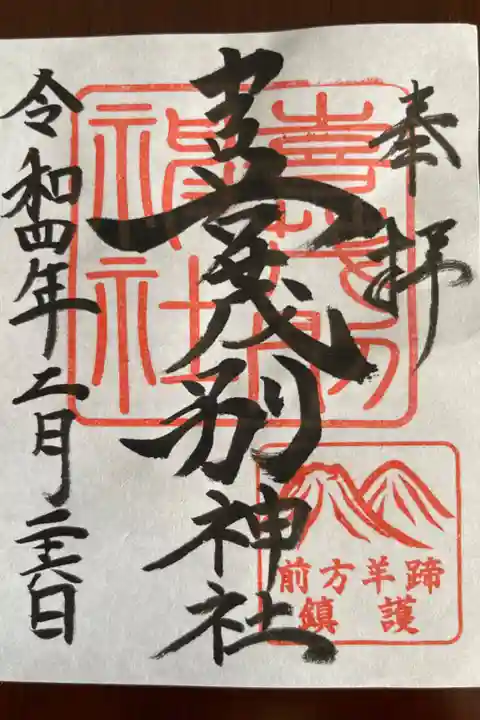 奉拝
喜茂別神社
令和四年二月二十六日
喜茂別
神社
前方羊蹄
鎮護